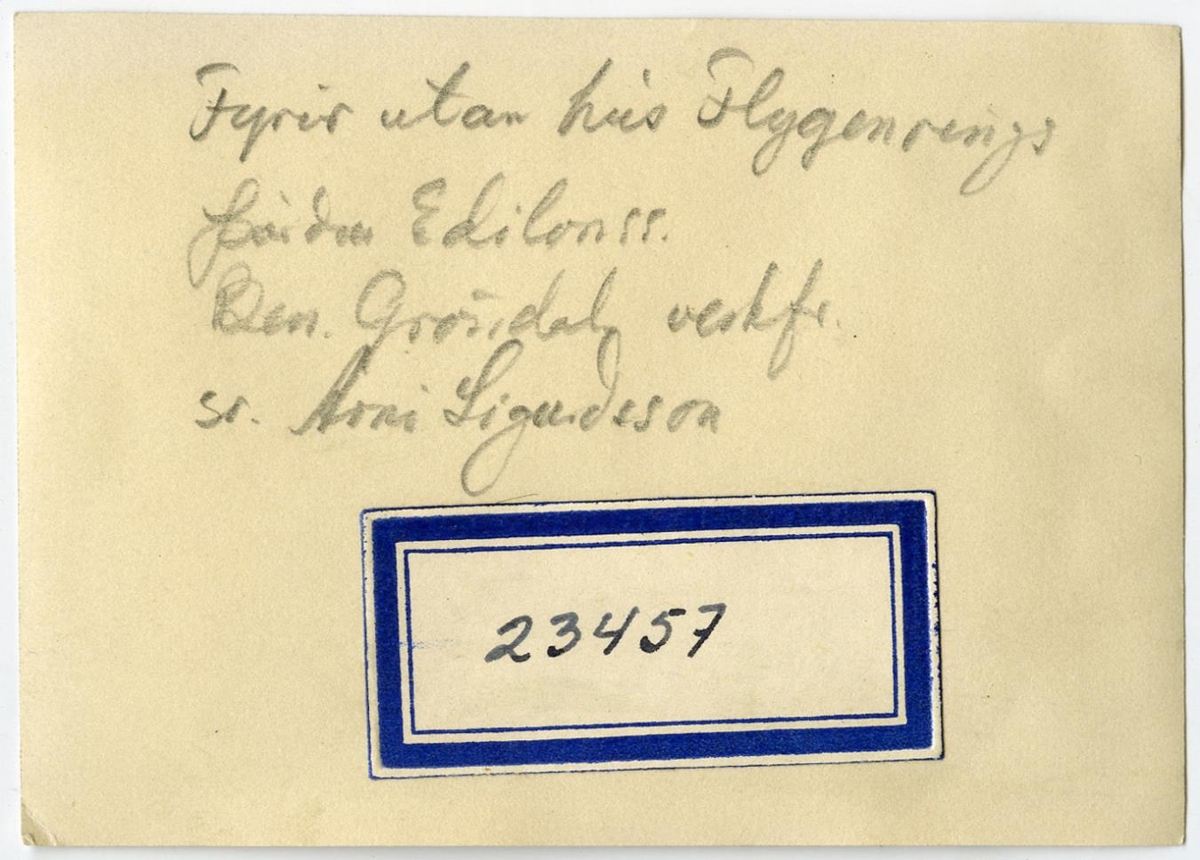 Fyrir utan hús Flygenrings
Þórður Edilonss.
Ben. Gröndal, verkfr.
sr. Árni Sigurðsson
23457